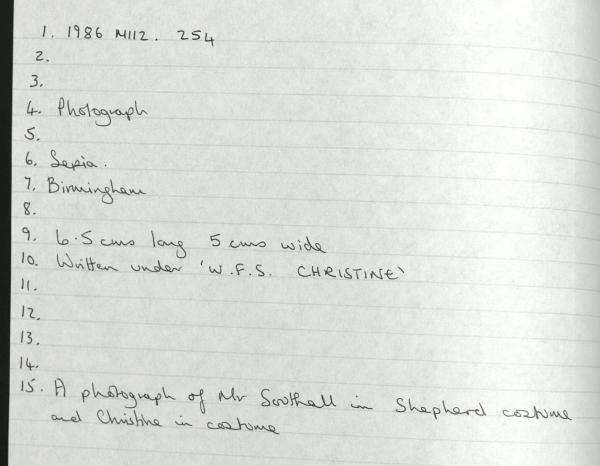 1. 1986 M112. 254
2.
3.
4. Photograph
5.
6. Sepia.
7. Birmingham
8.
9. 6.5 cms long 5 cms wide
10. Written under 'W.F.S. CHRISTINE'
11.
12.
13.
14.
15. A photograph of Mr Southall in Shepherd costume
and Christine in costume